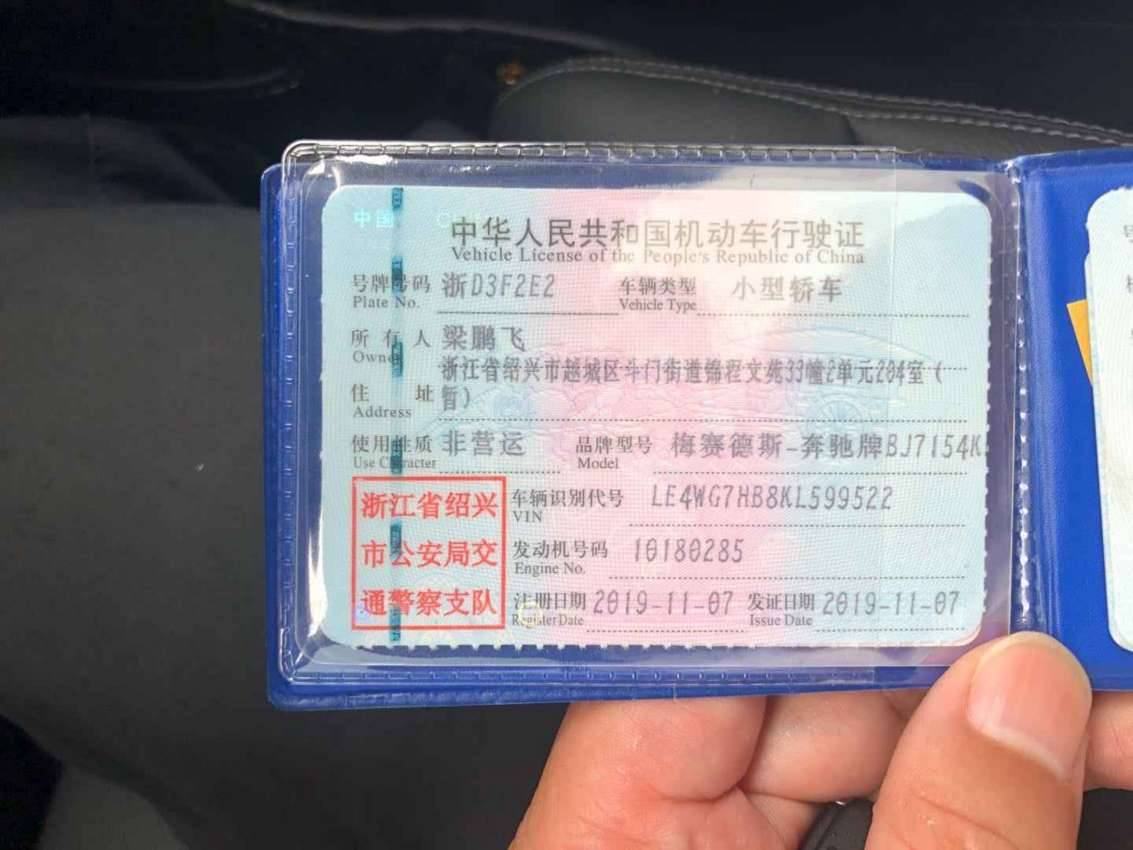 中国
中华人民共和国机动车行驶证
Vehicle License of the People's Republic of China
号牌号码 浙D3F2E2 车辆类型 小型轿车
Plate No. Vehicle Type
所有人 梁鹏飞
Owner
浙江省绍兴市越城区斗门街道锦程文苑33幢2单元204室（
住址 暂）
Address
使用性质 非营运 品牌型号 梅赛德斯-奔驰牌BJ7154K
Use Character Model
浙江省绍兴
市公安局交
通警察支队
车辆识别代号 LE4WG7HB8KL599522
VIN
发动机号码 10180285
Engine No.
注册日期 2019-11-07 发证日期 2019-11-07
Register Date Issue Date